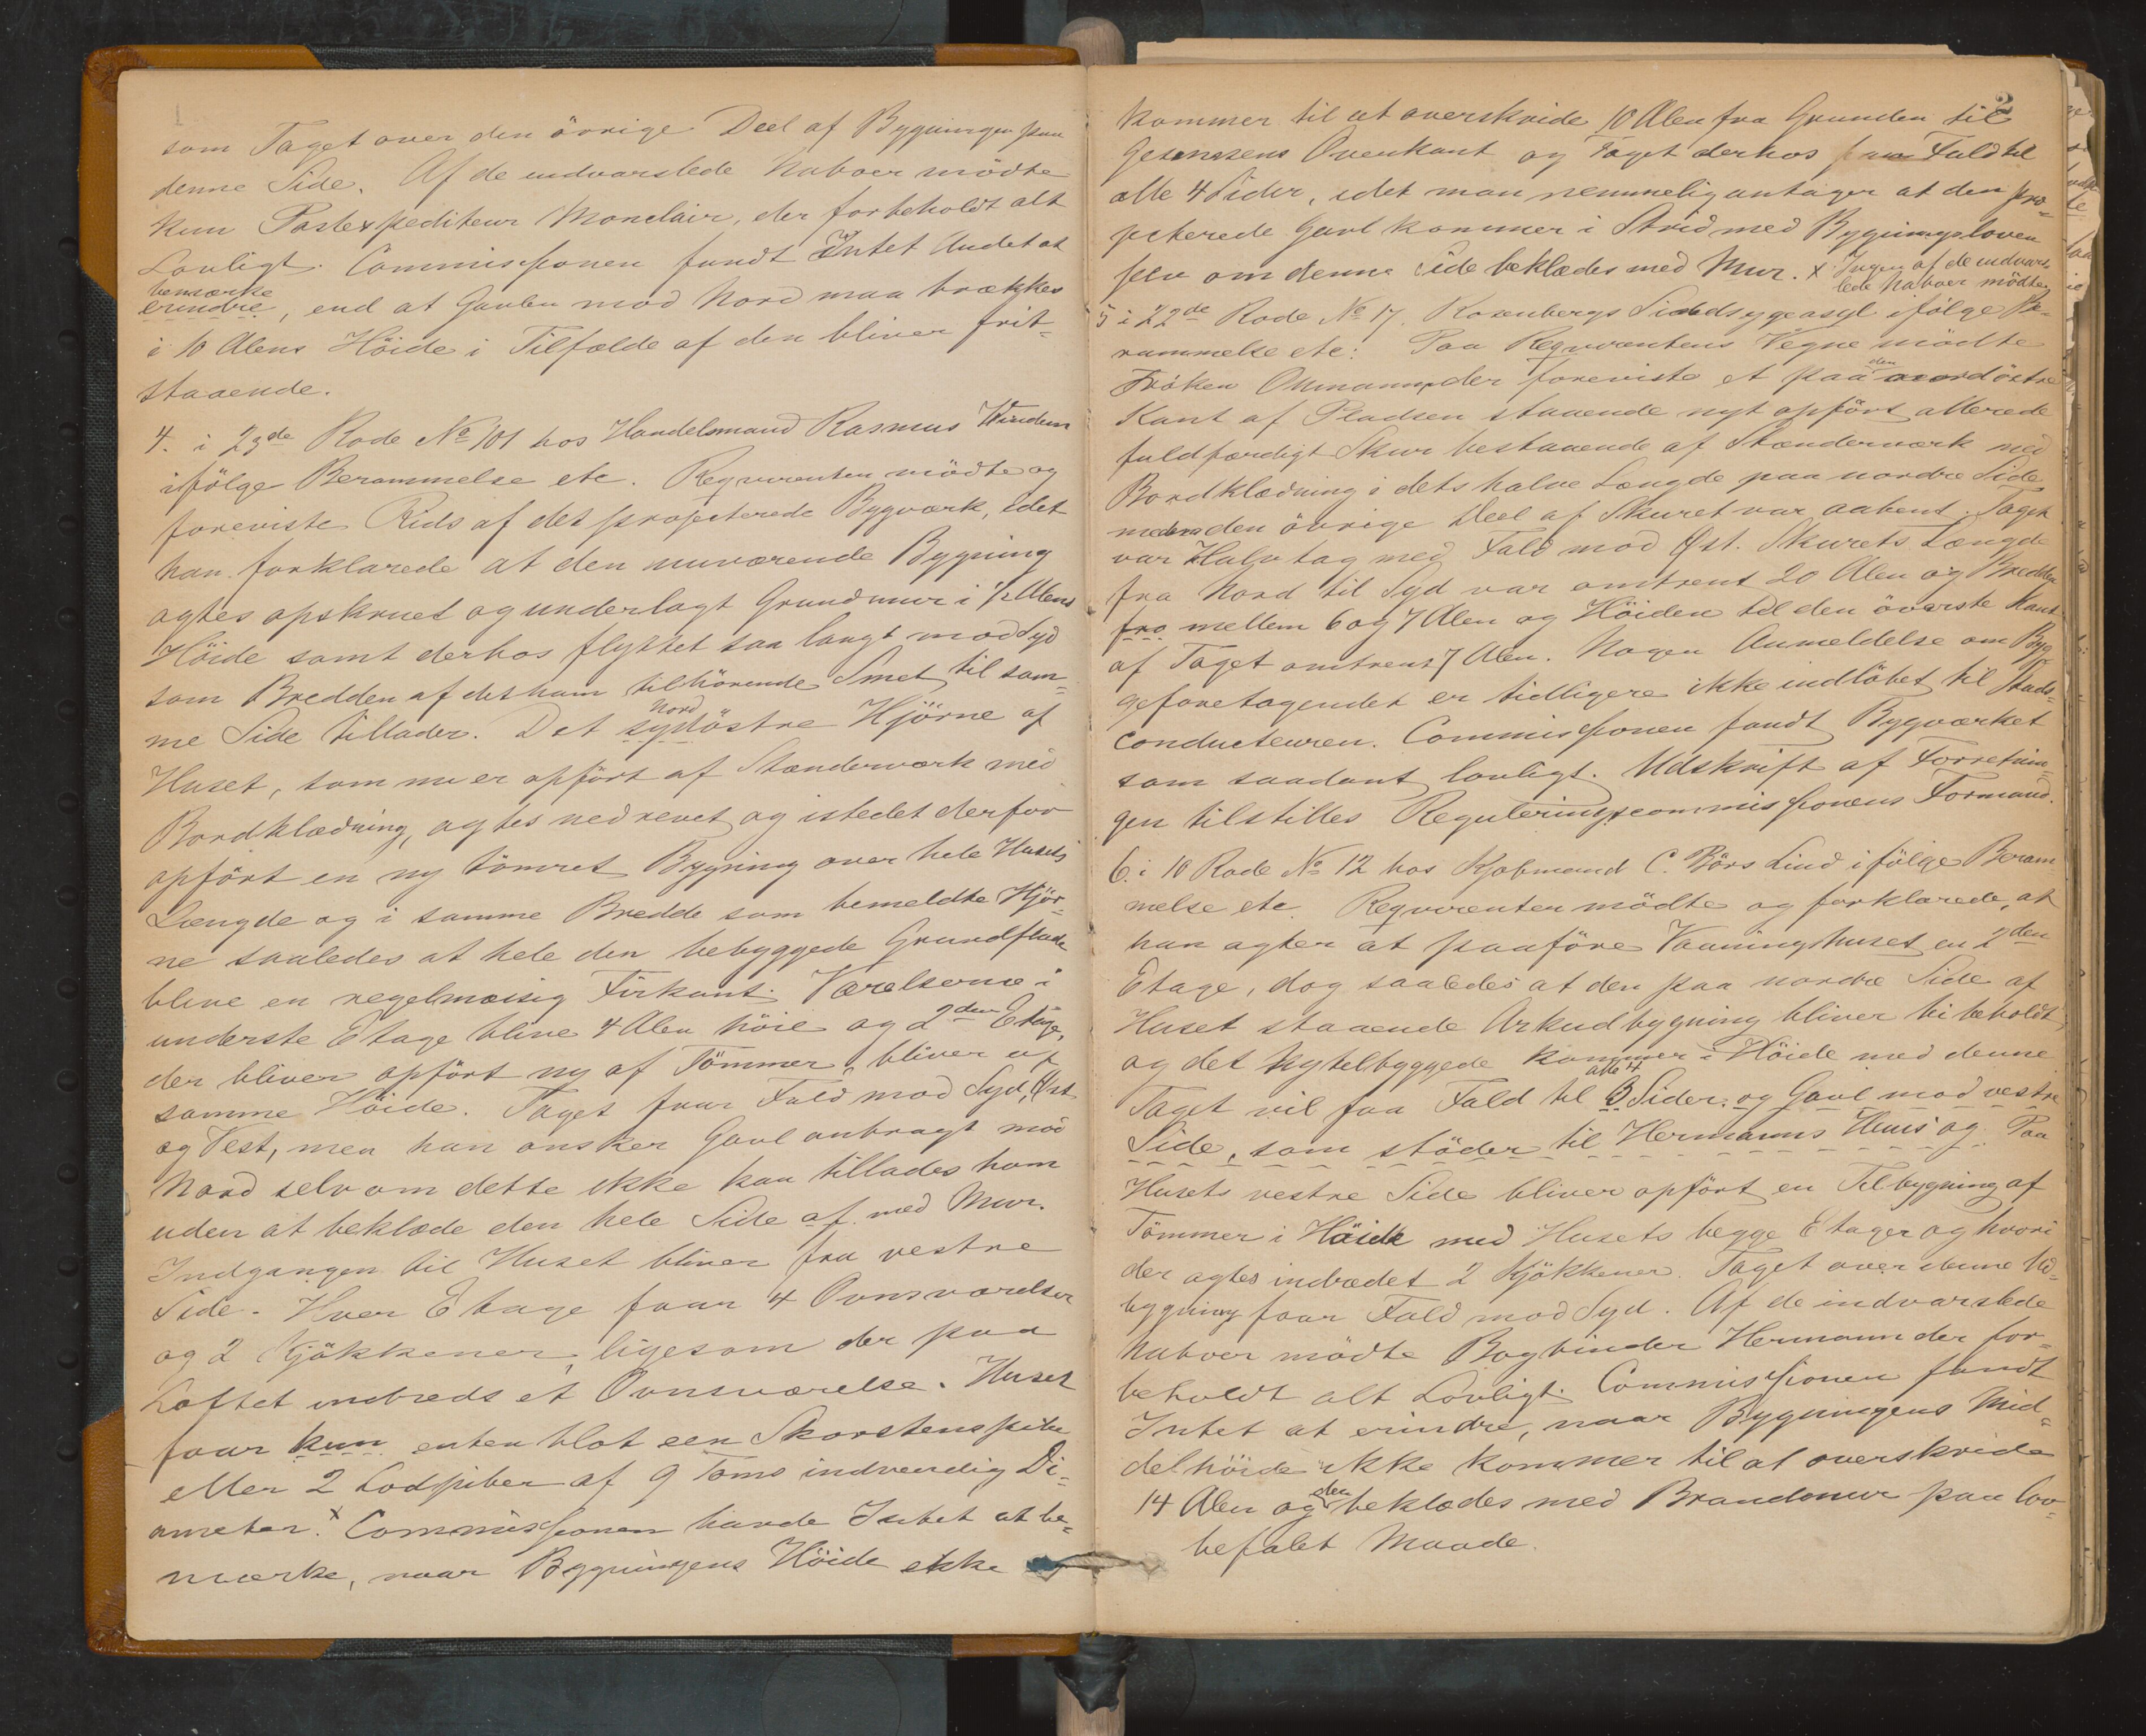 som Taget over den övrige Deel af Bygningen paa
denne Side. Af de indvarslede Naboer mödte
kun Postexpediteur Monclair, der forbeholdt alt
Lovligt. Commissionen fandt Intet Andet at
bemærke
erindre, end at Gavlen mod Nord maa brækkes
i 10 Alens Höide i Tilfælde af den bliver frit-
staaende.
4. i 23de Rode No 101 hos Handelsmand Rasmus Windum
ifölge Berammelse etc. Reqvirenten mödte og
foreviste Rids af det projecterede Bygværk, idet
han forklarede at den nuværende Bygning
agtes opskruet og underlagt Grundmur i 1/2 Alens
Höide samt derhos flyttet saa langt mod Syd
som Bredden af det ham tilhörende Smet til sam-
me Side tillader. Det sydöstre Hjörne af
Nord
Huset, som nu er opfört af Stænderværk med
Bordklædning, agtes nedrevet og istedet derfor
opfört en ny tömret Bygning over hele Husets
Længde og i samme Bredde som bemeldte Hjör-
ne saaledes at hele den bebyggede Grundflade
blive en regelmæsig Firkant. Værelserne i
underste Etage blive 4 Alen höie og 2den Etage,
der bliver opfört ny af Tömmer, bliver af
samme Höide. Taget faar Fald mod Syd, Öst
og Vest, men han önsker Gavl anbragt mod
Nord selv om dette ikke kan tillades ham
uden at beklæde den hele Side af med Mur.
Indgangen til Huset bliver fra vestre
Side. Hver Etage faar 4 Ovnsværelser
og 2 Kjökkener, ligesom der paa
Loftet indreds et Ovnsværelse. Huset
faar kun enten blot een Skorstenspibe
eller 2 Lodpiber af 9 Toms indvendig Di-
ameter. x Commissionen havde Intet at be-
mærke, naar Bygningens Höide ikke
2
kommer til at overskride 10 Alen fra Grunden til
Gesimsens Overkant og Taget derhos faar Fald til
alle 4 Sider, idet man nemmelig antager at den pro-
jekterede Gavl kommer i Strid med Bygningsloven
selv om denne Side beklædes med Mur. x Ingen af de indvars-
lede Naboer mödte.
5 i 22de Rode No 17. Rosenbergs Sindsygeasyl ifölge Be-
rammelse etc: Paa Reqvirentens Vegne mödte
Fröken Ohmann, der foreviste et paa den nordöstre
Kant af Pladsen staaende nyt opfört allerede
fuldfærdigt Skur bestaaende af Stænderværk med
Bordklædning i dets halve Længde paa nordre Side
medens den övrige Deel af Skuret var aabent. Taget
var Halvtag med Fald mod Öst. Skurets Længde
fra Nord til Syd var omtrent 20 Alen og Bredden
fra mellem 6 og 7 Alen og Höiden til den överste Kant
af Taget omtrent 7 Alen. Nogen Anmeldelse om Byg-
geforetagendet er tidligere ikke indlöbet til Stads-
conducteuren. Commissionen fandt Bygværket
som saadant lovligt. Udskrift af Forretnin-
gen tilstilles Reguleringscommissionens Formand.
6. i 10 Rode No 12 hos Kjøbmand C. Börs Lind ifölge Beram
melse etc. Reqvirenten mödte og forklarede, at
han agter at paaföre Vaaningshuset en 2den
Etage, dog saaledes at den paa nordre Side af
Huset staaende Arkudbygning bliver bibeholdt
og det nytilbyggede kommer i Höide med denne
alle 4
Taget vil faa Fald til 3 Sider og Gavl mod vestre
Side, som stöder til Hermanns Huus og. Paa
Husets vestre Side bliver opfört en Tilbygning af
Tömmer i Höide med Husets begge Etager og hvori
der agtes indrædet 2 Kjökkener. Taget over denne Ud-
bygning faar Fald mod Syd. Af de indvarslede
Naboer mödte Bogbinder Hermann der for-
beholdt alt Lovligt. Commissionen fandt
Intet at erindre, naar Bygningens Mid-
delhöide ikke kommer til at overskride
14 Alen og den beklædes med Brandmur paa lov-
befalet Maade.